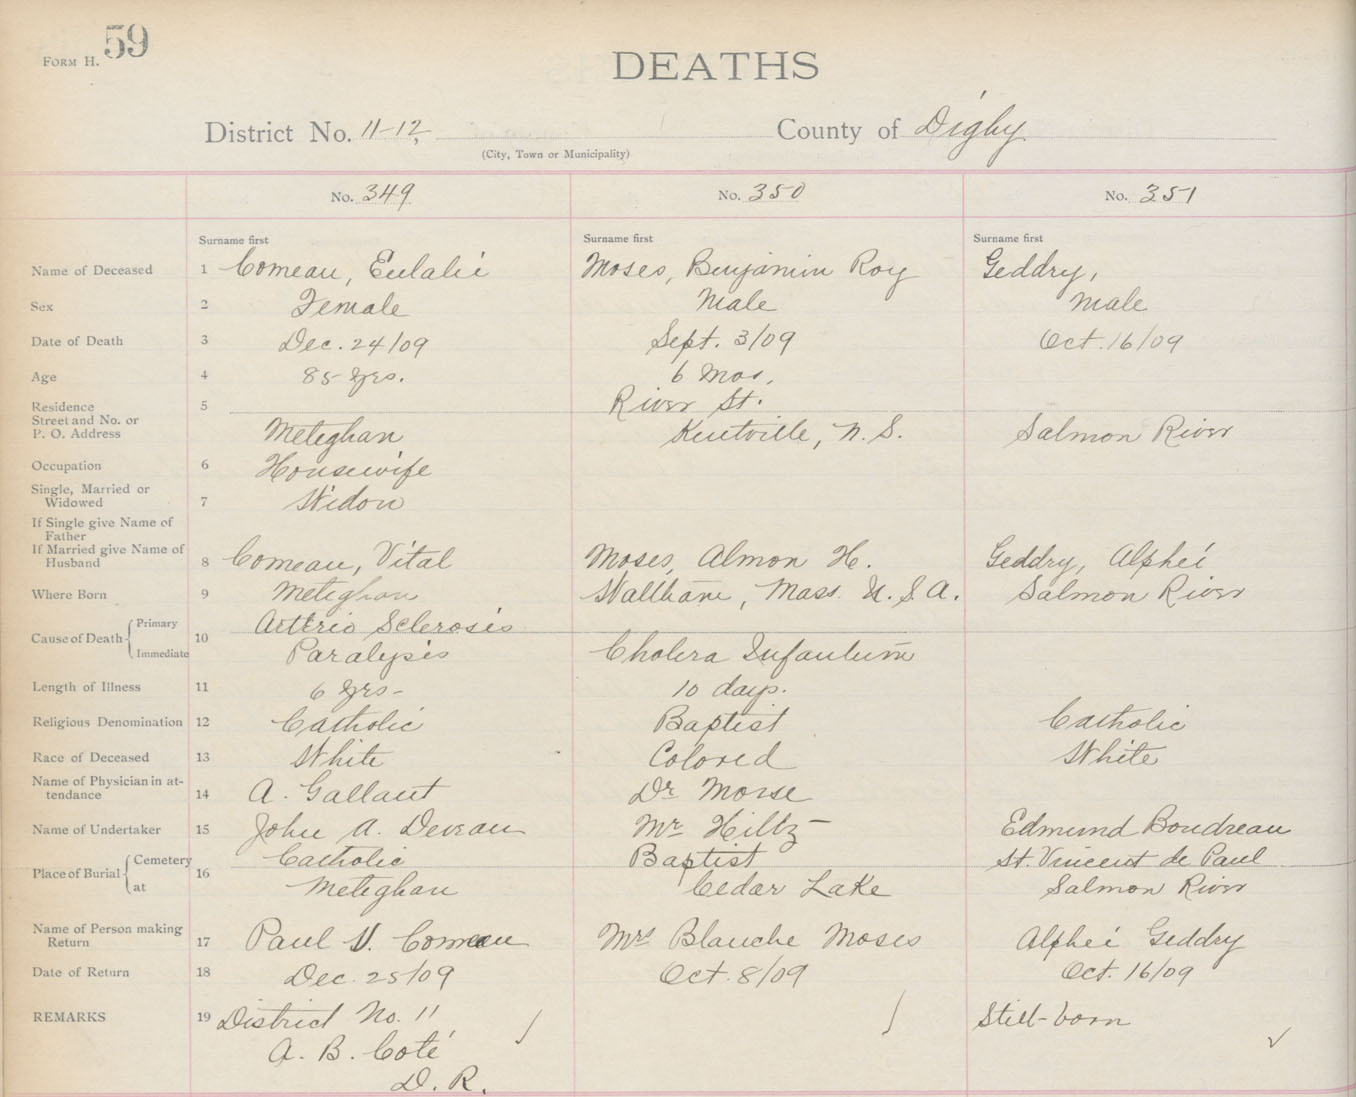 FORM H. 59
DEATHS
District No. 11-12, County of Digby
(City, Town or Municipality)
No. 349 No. 350 No. 351
Surname first Surname first Surname first
Name of Deceased 1 Comeau, Eulalie Moses, Benjamin Roy Geddry,
Sex 2 Female Male Male
Date of Death 3 Dec. 24/09 Sept. 3/09 Oct. 16/09
Age 4 85 yrs. 6 mos.
Residence 5 River St.
Street and No. or
P. O. Address Meteghan Kentville, N. S. Salmon River
Occupation 6 Housewife
Single, Married or
Widowed 7 Widow
If Single give Name of
Father
If Married give Name of
Husband 8 Comeau, Vital Moses, Almon H. Geddry, Alphéi
Where Born 9 Meteghan Waltham, Mass. U. S. A. Salmon River
Cause of Death Primary 10 Arterio Sclerosis
Immediate Paralysis Cholera Infantum
Length of Illness 11 6 yrs- 10 days.
Religious Denomination 12 Catholic Baptist Catholic
Race of Deceased 13 White Colored White
Name of Physician in at-
tendance 14 A. Gallant Dr Morse
Name of Undertaker 15 John A. Deveau Mr Hiltz Edmund Boudreau
Place of Burial Cemetery 16 Catholic Baptist St. Vincent de Paul
at Meteghan Cedar Lake Salmon River
Name of Person making
Return 17 Paul V. Comeau Mrs Blanche Moses Alphéi Geddry
Date of Return 18 Dec. 25/09 Oct. 8/09 Oct. 16/09
REMARKS 19 District No. 11 Still-born
A. B. Coté
D. R.